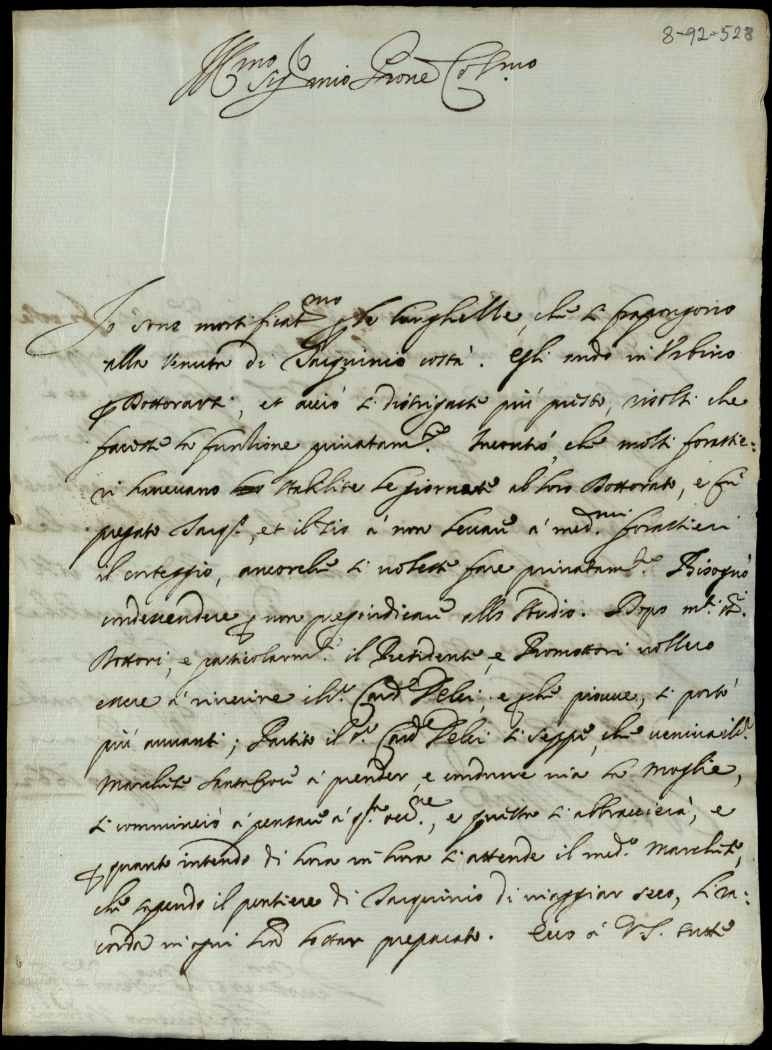 8-92-528
Ill.mo Sig.r mio P.rone Col.mo
Io sono mortificat.mo p le lunghette, che si frapongono
alla venuta di Tarquinio costà. Egli andò in Urbino
p Dottorarsi, et acciò si distrigasse più presto, risolsi che
facesse la funtione privatam.te. Incontrò, che molti forastie:
ri havevano stabilite le giornate al loro Dottorato, e fù
pregato Tarq.o, et il Zio à non levare à med.mi forastieri
il corteggio, ancorche si volesse fare privatam.te. Bisognò
condescendere p non pregiudicare allo studio. Dopo m.ti SS.ri
Dottori, e particolarm.te il Presidente, e Promottori vollero
essere à riverire il S.r Card.le Delci, e p che piovve, si portò
più avvanti; Partito il S.r Card.le Delci si seppe, che veniva il S.r
Marchese Santacroce à prender, e condurre via la Moglie,
si comminciò à pensare à q.sta occ.ne, e questa si abbraccierà, e
p quanto intendo di hora in hora si attende il med.o Marchese,
che sapendo il pensiere di Tarquinio di viaggiar seco, li ra:
corda in ogni l'ra lo star preparato. Ecco à V.S. tutte